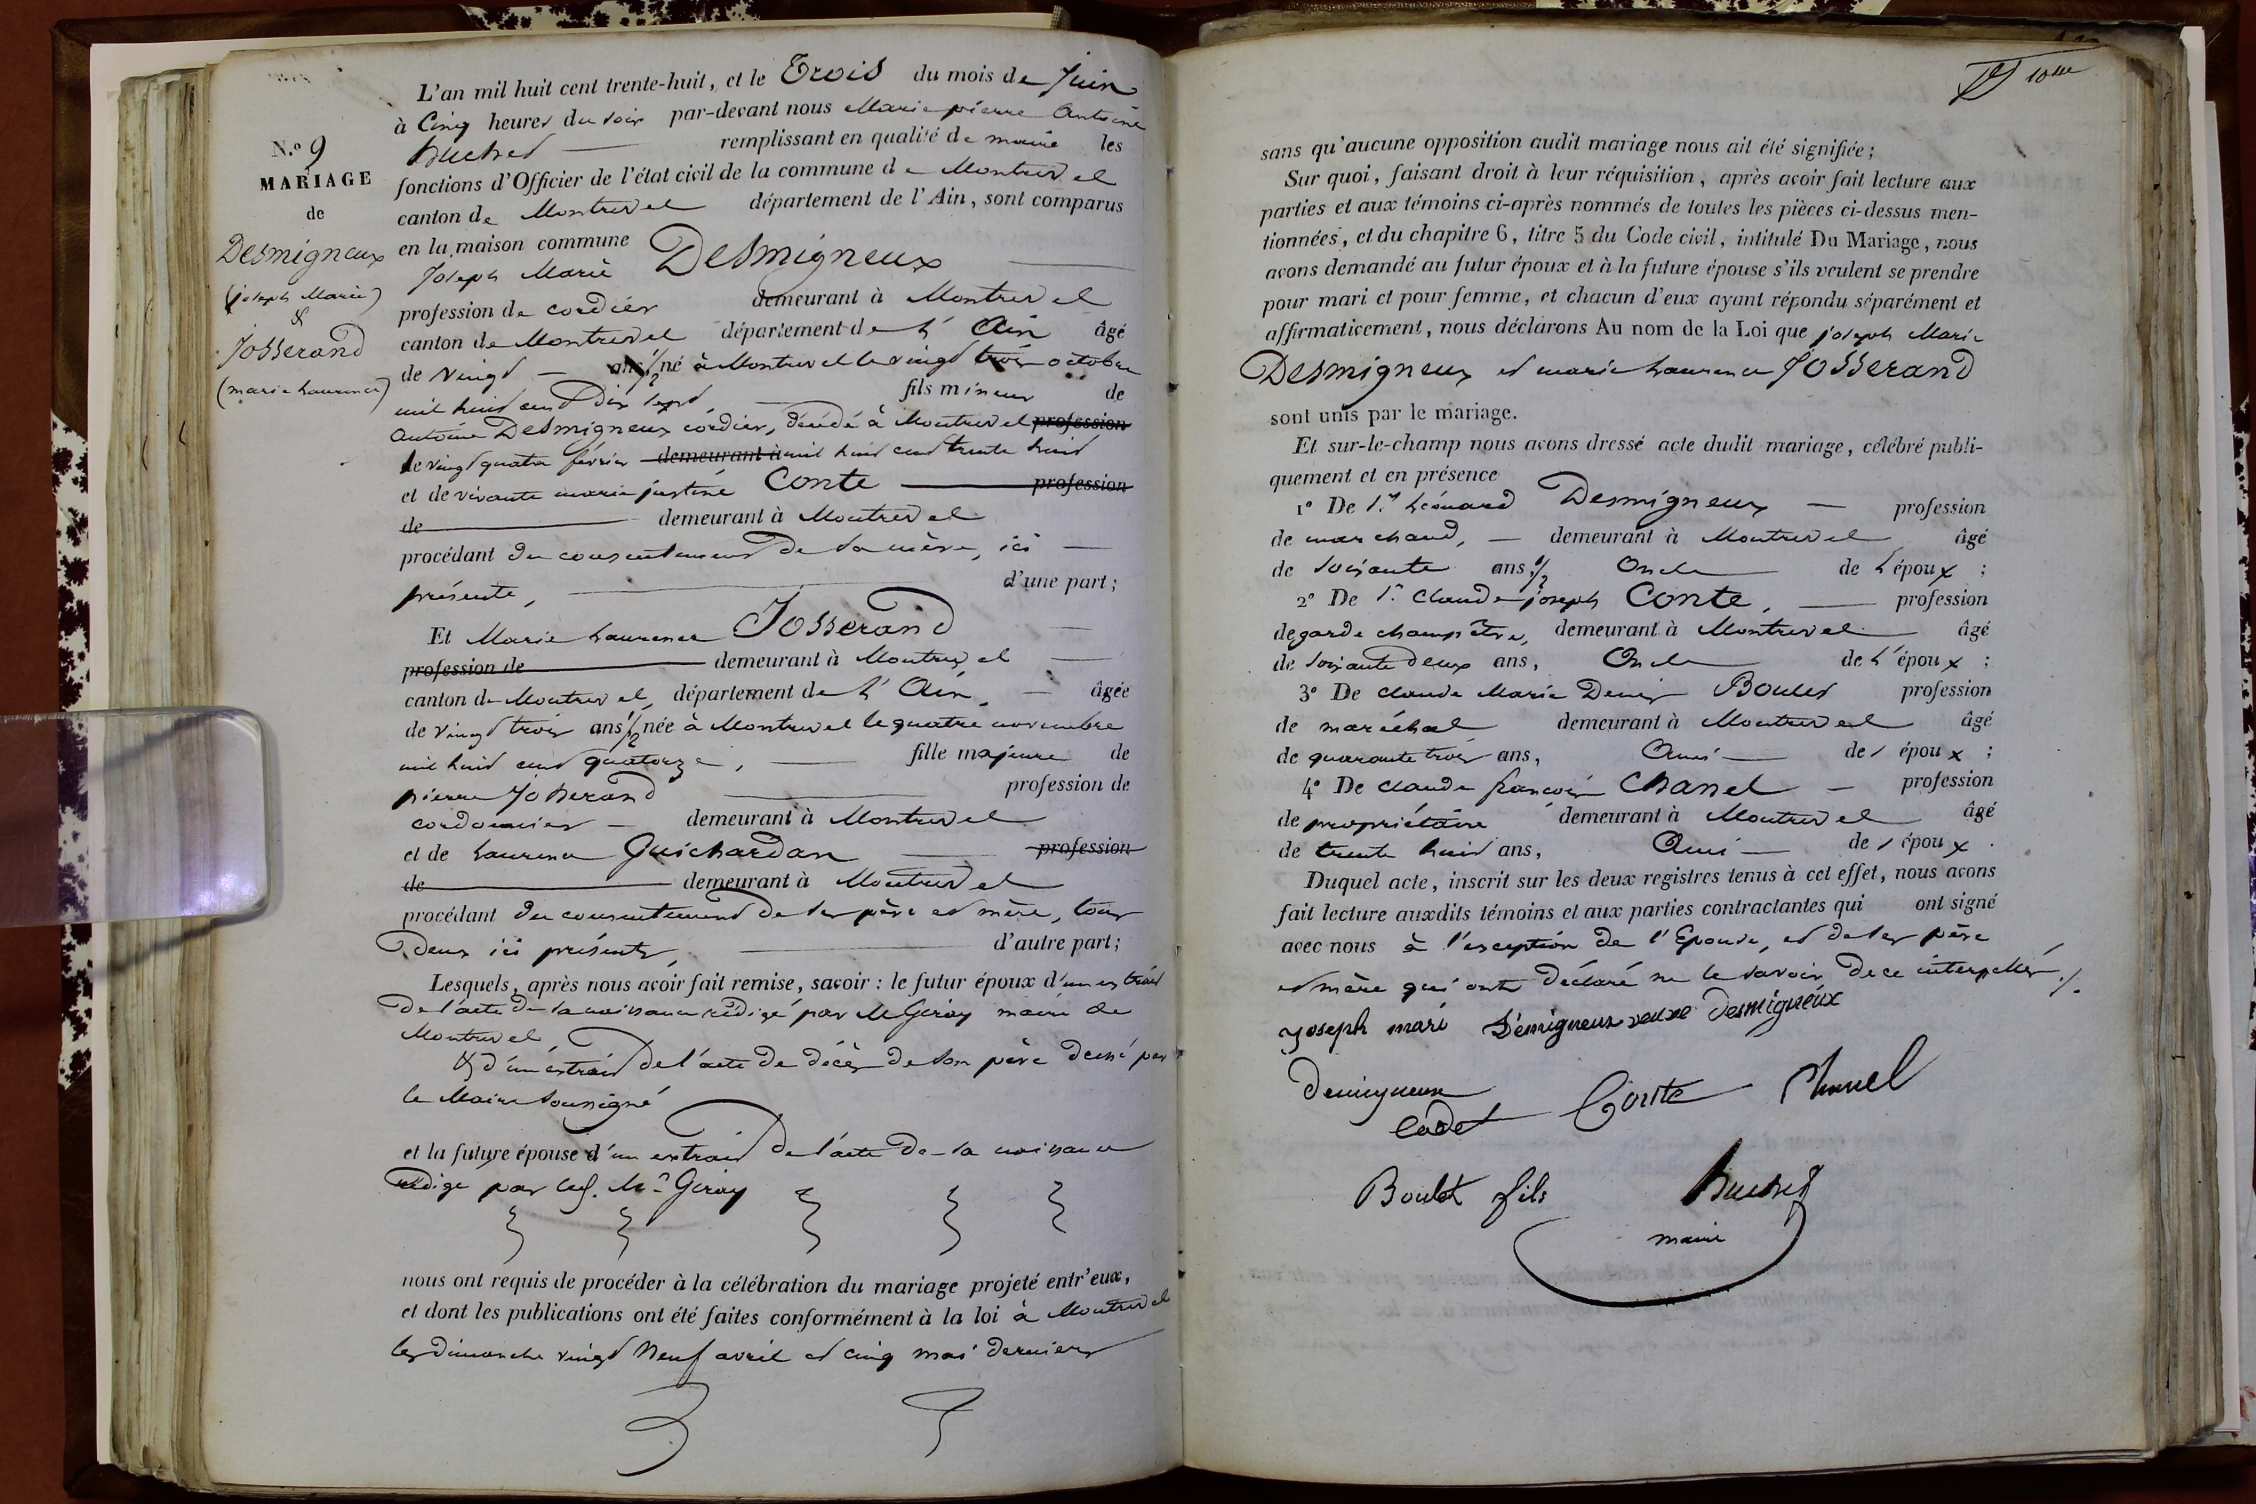 N.º 9
MARIAGE
de
Desmigneux
(joseph Marie)
&
Josserand
(marie Laurence)
L'an mil huit cent trente-huit, et le Trois du mois de Juin
à Cinq heures du soir par-devant nous Marie pierre Antoine
Buchet remplissant en qualité de maire les
fonctions d'Officier de l'état civil de la commune de Montrevel
canton de Montrevel département de l'Ain, sont comparus
en la maison commune
Joseph Marie Desmigneux
profession de cordier demeurant à Montrevel
canton de Montrevel département de L'Ain âgé
de vingt ans 1/2 né à Montrevel le vingt trois octobre
mil huit cent dix sept fils mineur de
Antoine Desmigneux cordier, décédé à Montrevel profession
le vingt quatre février demeurant à mil huit cent trente huit
et de vivante marie justine Conte profession
de demeurant à Montrevel
procédant du consentement de sa mère, ici
présente, d'une part;
Et Marie Laurence Josserand
profession de demeurant à Montrevel
canton de Montrevel, département de L'Ain, âgée
de vingt trois ans 1/2 née à Montrevel le quatre novembre
mil huit cent quatorze, fille majeure de
pierre Josserand profession de
cordonnier demeurant à Montrevel
et de Laurence Guichardan profession
de demeurant à Montrevel
procédant du consentement de ses père et mère, tous
deux ici présents, d'autre part;
Lesquels, après nous avoir fait remise, savoir: le futur époux d'un extrait
de l'acte de sa naissance rédigé par Mr Giray maire de
Montrevel,
& d'un extrait de l'acte de décès de son père dressé par
le Maire soussigné
et la future épouse d'un extrait de l'acte de sa naissance
rédigé par led. Mr Giray
nous ont requis de procéder à la célébration du mariage projeté entr'eux,
et dont les publications ont été faites conformément à la loi à Montrevel
les dimanche vingt Neuf avril et cinq mai derniers
10me
sans qu'aucune opposition audit mariage nous ait été signifiée;
Sur quoi, faisant droit à leur réquisition, après avoir fait lecture aux
parties et aux témoins ci-après nommés de toutes les pièces ci-dessus men-
tionnées, et du chapitre 6, titre 5 du Code civil, intitulé Du Mariage, nous
avons demandé au futur époux et à la future épouse s'ils veulent se prendre
pour mari et pour femme, et chacun d'eux ayant répondu séparément et
affirmativement, nous déclarons Au nom de la Loi que joseph Marie
Desmigneux et marie Laurence Josserand
sont unis par le mariage.
Et sur-le-champ nous avons dressé acte dudit mariage, célébré publi-
quement et en présence
1º De Sr Léonard Desmigneux profession
de marchand, demeurant à Montrevel âgé
de soixante ans 1/2 Oncle de L'époux;
2º De Sr Claude joseph Conte, profession
de garde champêtre, demeurant à Montrevel âgé
de soixante deux ans, Oncle de L'époux;
3º De claude Marie Denis Boulet profession
de maréchal demeurant à Montrevel âgé
de quarante trois ans, Ami de l'époux;
4º De claude françois Chanel profession
de propriétaire demeurant à Montrevel âgé
de trente huit ans, Ami de l'époux.
Duquel acte, inscrit sur les deux registres tenus à cet effet, nous avons
fait lecture auxdits témoins et aux parties contractantes qui ont signé
avec nous à l'exception de l'Epouse, et de ses père
et mère qui ont déclaré ne le savoir de ce interpellés ./.
joseph mari Démigneux veuve Desmigneux
Demigneux
Cadet Conte Chanel
Boulet fils Buchet
maire